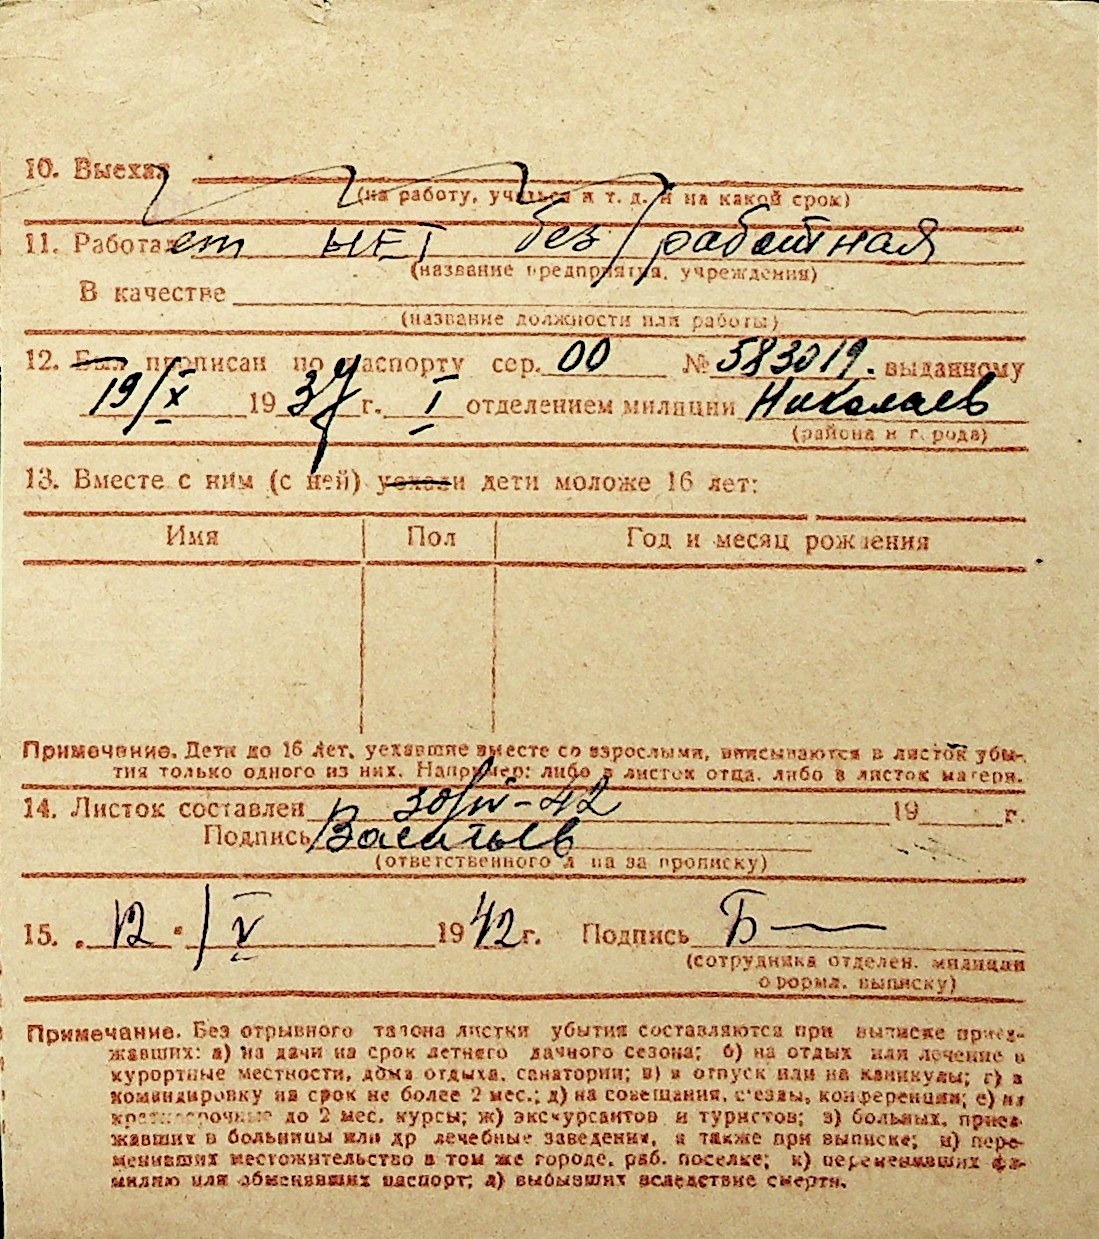 10. Выехал
(на работу, учиться и т. д. и на какой срок)
11. Работает НЕТ без/работная
(название предприятия, учреждения)
В качестве
(название должности или работы)
12. Был прописан по паспорту сер. 00 № 583019. выданному
19/X 1937 г. I отделением милиции Николаев
(района и города)
13. Вместе с ним (с ней) уехали дети моложе 16 лет:
Имя Пол Год и месяц рождения
Примечание. Дети до 16 лет, уехавшие вместе со взрослыми, вписываются в листок убы-
тия только одного из них. Например: либо в листок отца, либо в листок матери.
14. Листок составлен 30/IV-42 19 г.
Подпись
(ответственного лица за прописку)
15. „12“/V 1942 г. Подпись Б
(сотрудника отделен. милиции
оформл. выписку)
Примечание. Без отрывного талона листки убытия составляются при выписке приез-
жавших: а) на дачи на срок летнего дачного сезона; б) на отдых или лечение в
курортные местности, дома отдыха, санатории; в) в отпуск или на каникулы; г) в
командировку на срок не более 2 мес.; д) на совещания, с'езды, конференции; е) на
краткосрочные до 2 мес. курсы; ж) экскурсантов и туристов; з) больных, приез-
жавших в больницы или др лечебные заведения, а также при выписке; и) пере-
менивших местожительство в том же городе, раб. поселке; к) переменивших фа-
милию или обменявших паспорт; л) выбывших вследствие смерти.